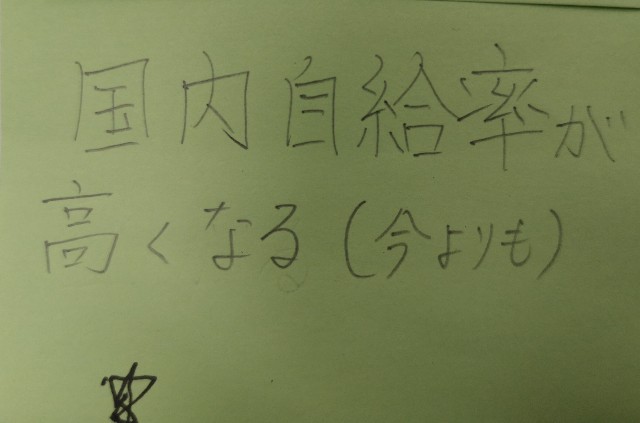 国内自給率が
高くなる(今よりも)